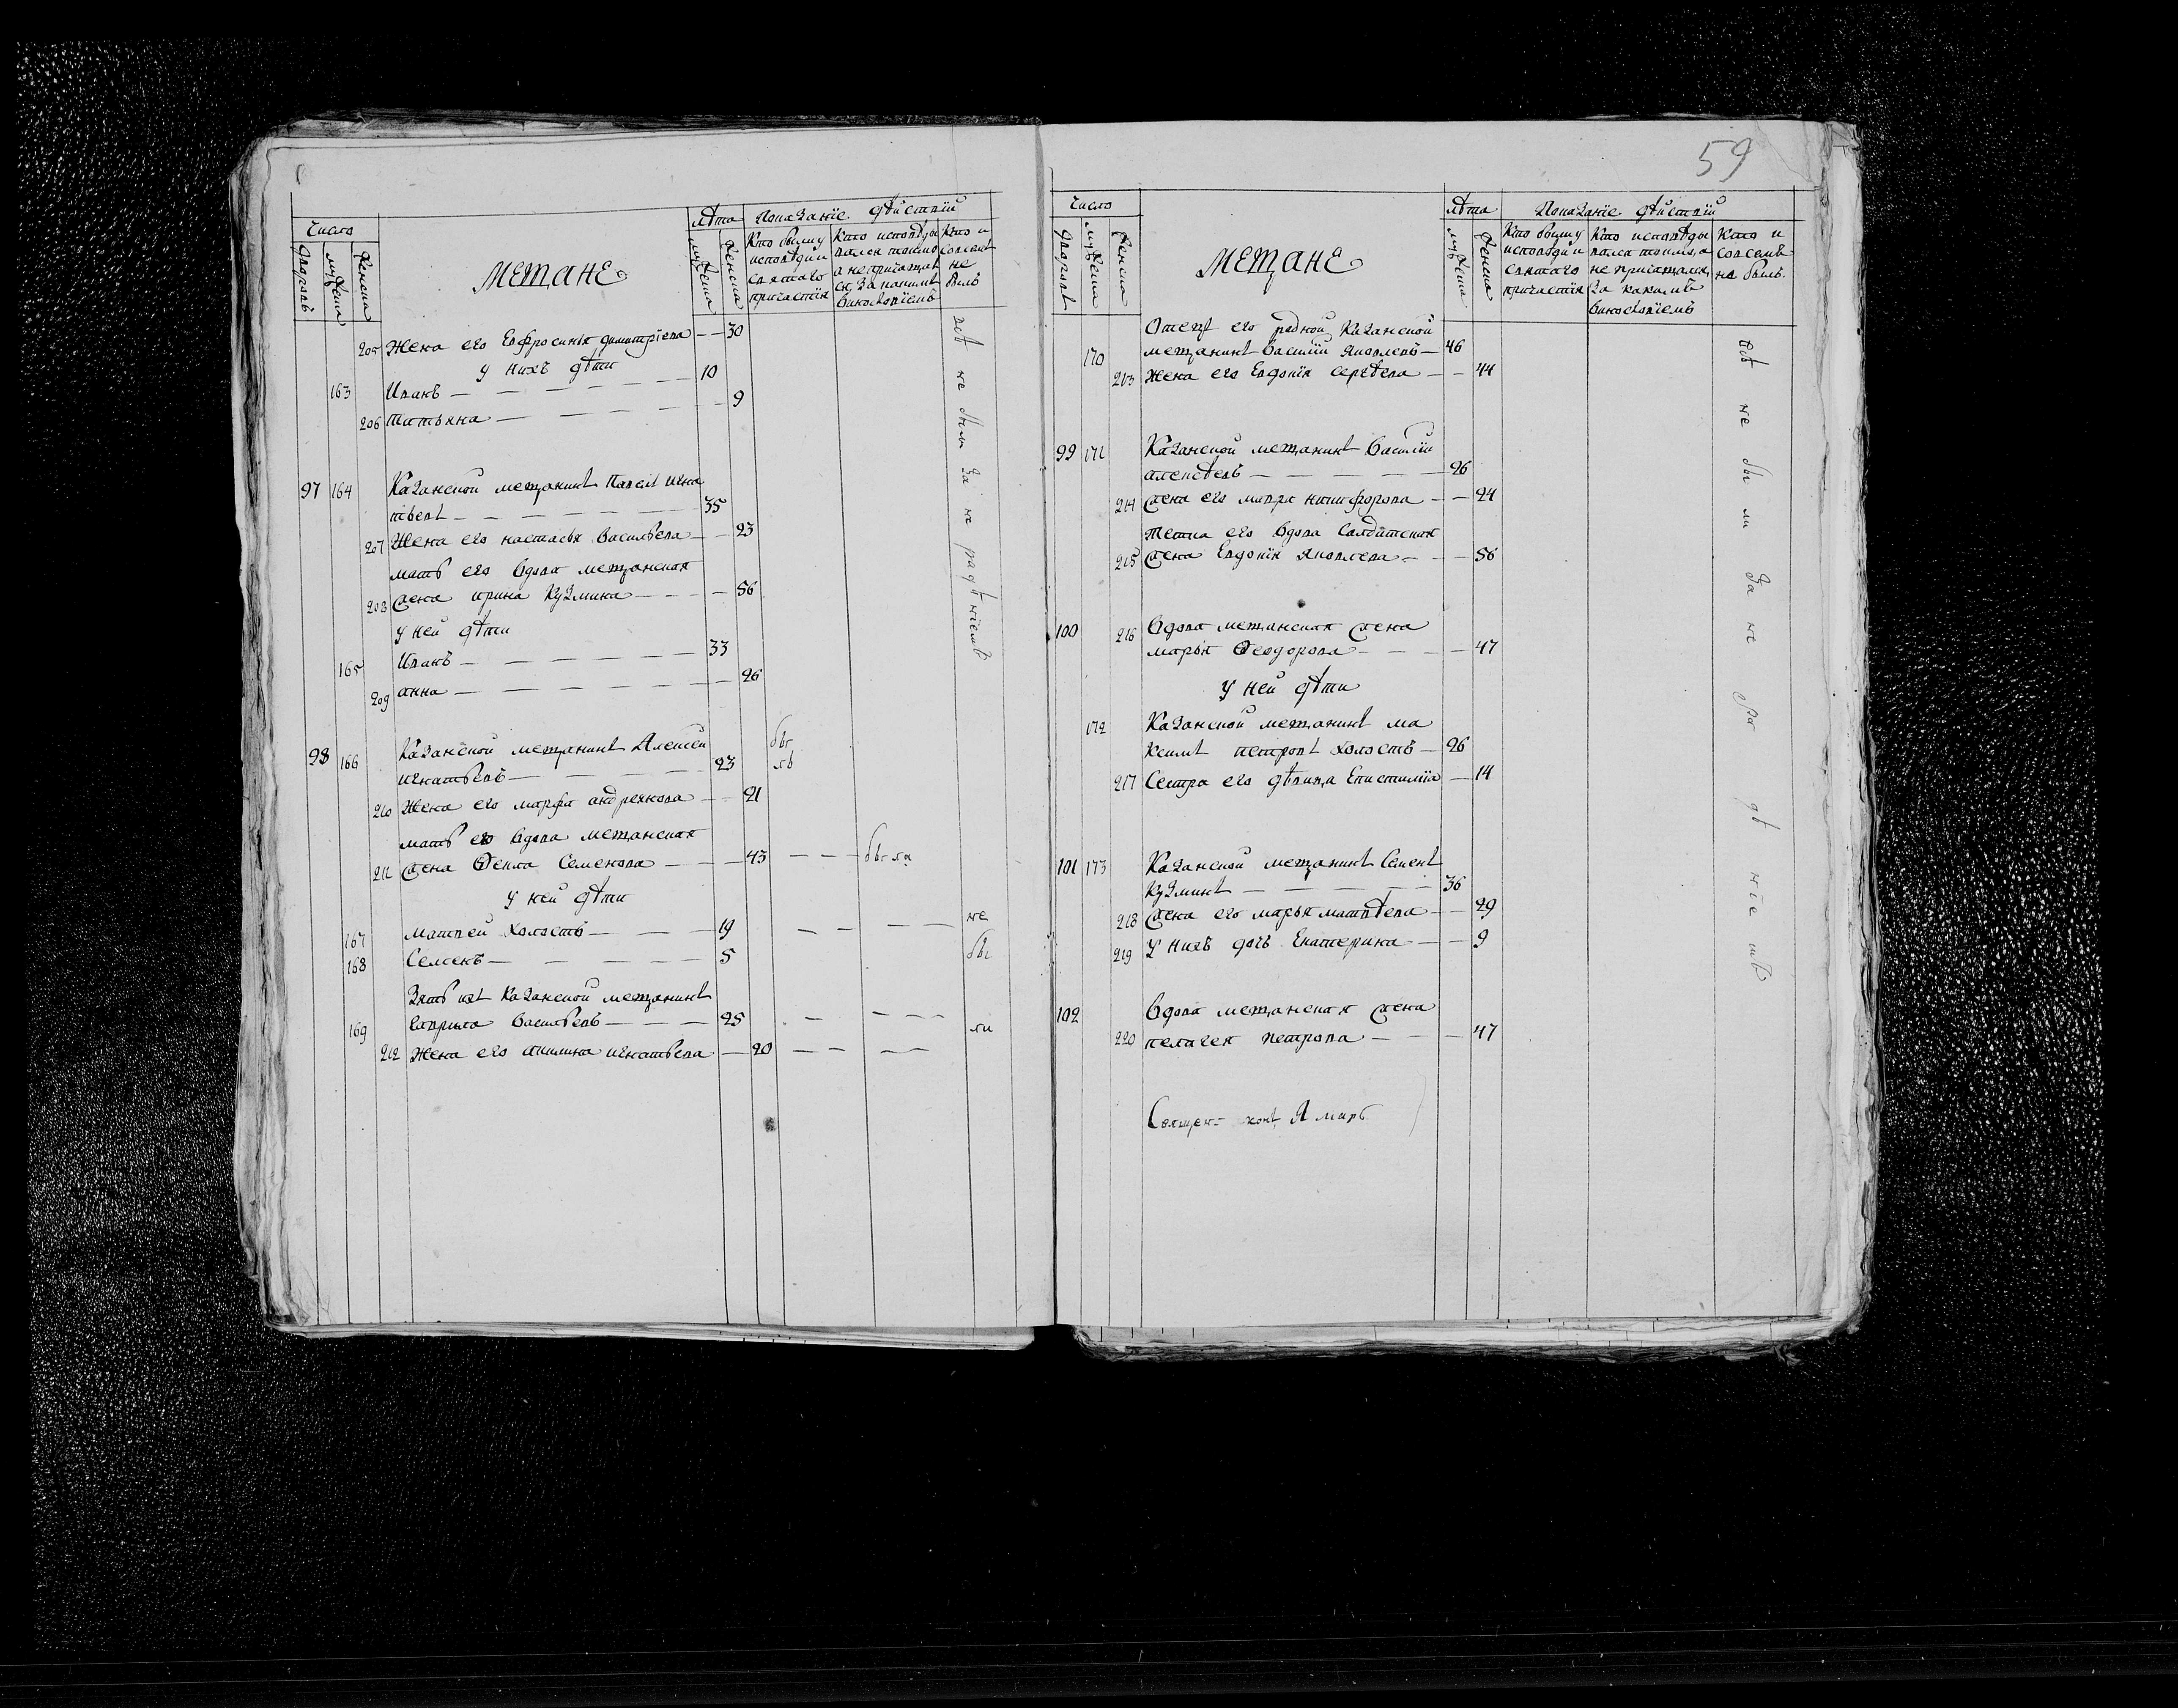 Число
дворовъ
мужеска
женска
МЕЩАНЕ
лѣта
мужеска
женска
Показанїе дѣйствїй
Кто былъ у
исповѣди и
святаго
причастїя
Кто исповѣды
вался токмо
а непричащал
ся, За какимъ
виновствїемъ
Кто и
совсемъ
не
былъ
205 Жена его Евфросинья димитрїева — — 30
у нихъ дѣти
163 Иванъ — — — — — 10
206 Татьяна — — — — — 9
97 164 Казанской мещанинъ Павелъ игна
тьевъ — — — — — 35
207 Жена его настасья Васильева — — 23
мать его вдова мещанская
208 жена ирина Кузмина — — — — 56
у ней дѣти
165 Иванъ — — — — — 33
209 анна — — — — — 26
всѣ не были за не радѣнїемъ
98 166 Казанской мещанинъ Алексей
игнатьевъ — — — — 23
210 Жена его марфа андреянова — — 21
бы
ли
мать ево вдова мещанская
211 жена Ѳекла Семенова — — — 43 — — — была
у ней дѣти
167 Матвей холостъ — — — 19 — — — —
168 Семенъ — — — — — 5
Зять ихъ Казанской мещанинъ
169 Гаврила Васильевъ — — — 25 — — — —
212 Жена его акилина игнатьева — 20 — — — —
не
бы
ли
59
Число
дворовъ
мужеска
женска
МЕЩАНЕ
лѣта
мужеска
женска
Показанїе дѣйствїй
Кто былъ у
исповѣди и
святаго
причастїя
Кто исповѣды
вался токмо, а
не причащался,
За какимъ
виновствїемъ
Кто и
совсемъ
не былъ
Отецъ его родной, Казанской
170 мещанинъ Василїй Яковлевъ — 46
213 Жена его Евдокїя Сергѣева — — 44
99 171 Казанской мещанинъ Василїй
алексѣевъ — — — — — 26
214 жена его мавра никифорова — — 24
Тетка его вдова Салдатская
215 жена Евдокїя Яковлева — — — 56
100 216 Вдова мещанская жена
марья Ѳеодорова — — — — 47
У ней дѣти
172 Казанской мещанинъ ма
ксимъ петровъ холостъ — 26
217 Сестра его дѣвица Епистимїя — 14
101 173 Казанской мещанинъ Семенъ
Кузминъ — — — — — 36
218 жена его марья матвѣева — — 29
219 У нихъ дочь Екатерина — — 9
102 Вдова мещанская жена
220 пелагея петрова — — — 47
всѣ не бы ли За не ра дѣ нїе мъ
Священ=